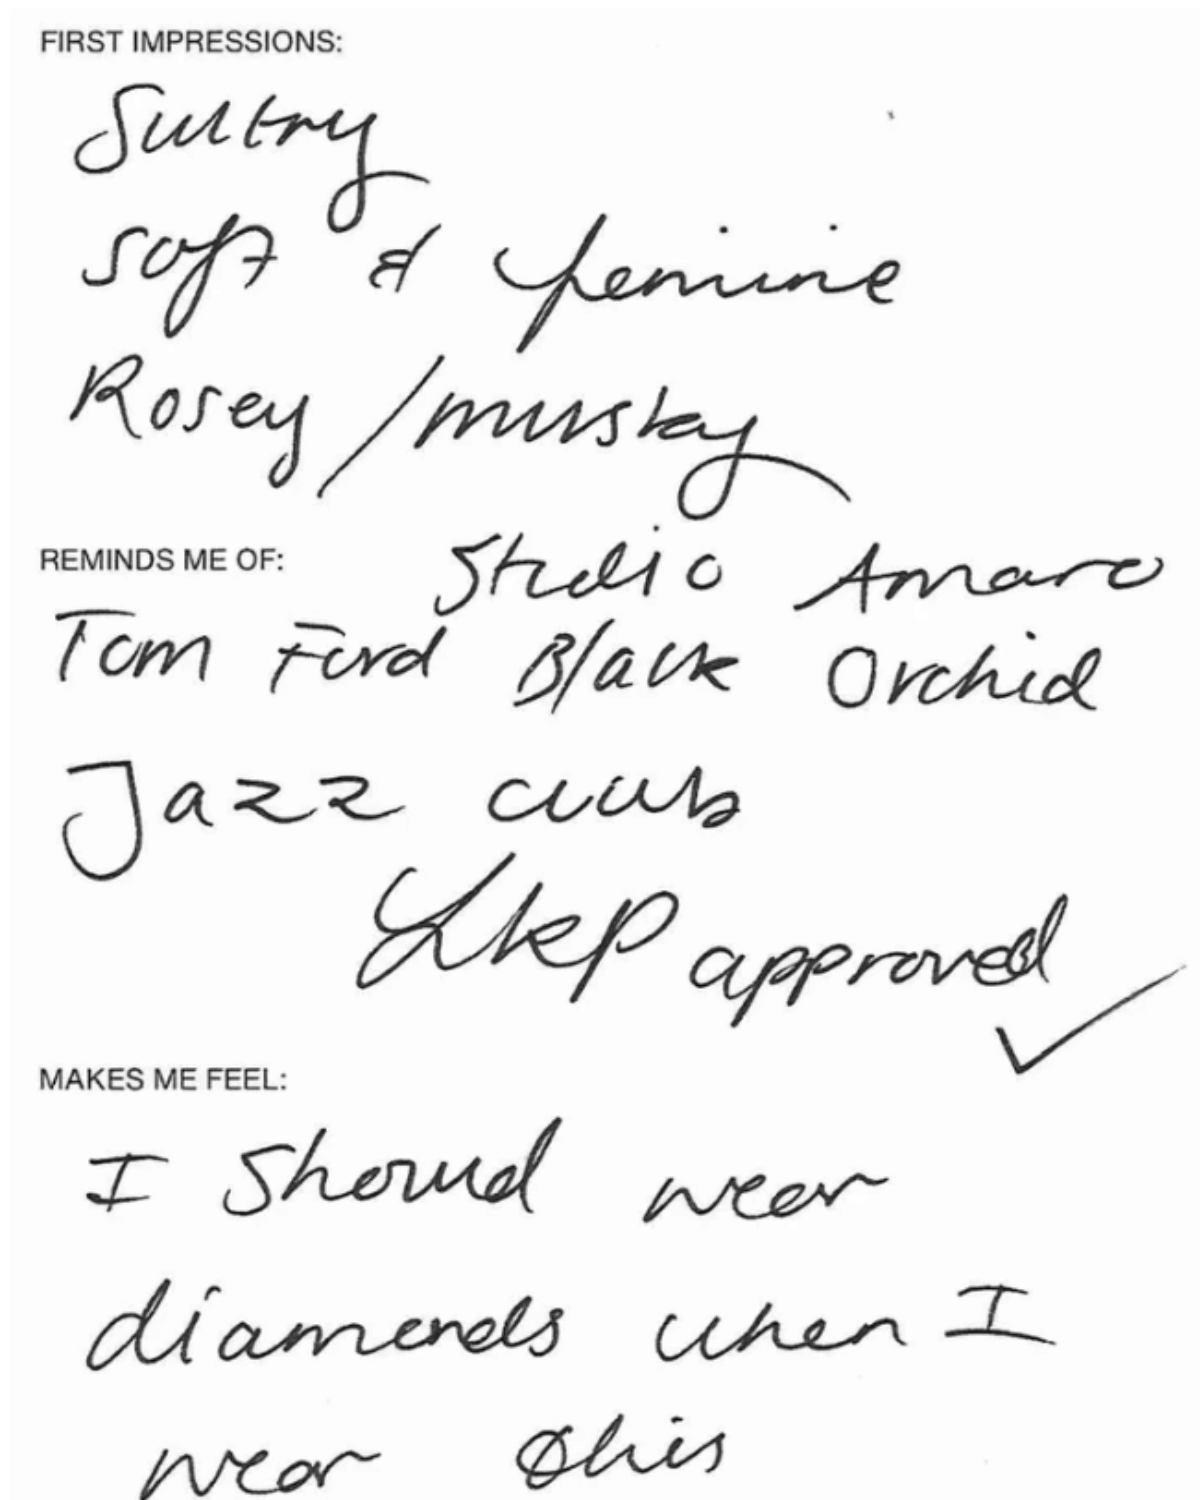 FIRST IMPRESSIONS:
Sultry
soft & feminine
Rosey / musky
REMINDS ME OF: Studio Amaro
Tom Ford Black Orchid
Jazz club
LKP approved ✓
MAKES ME FEEL:
I should wear
diamonds when I
wear this